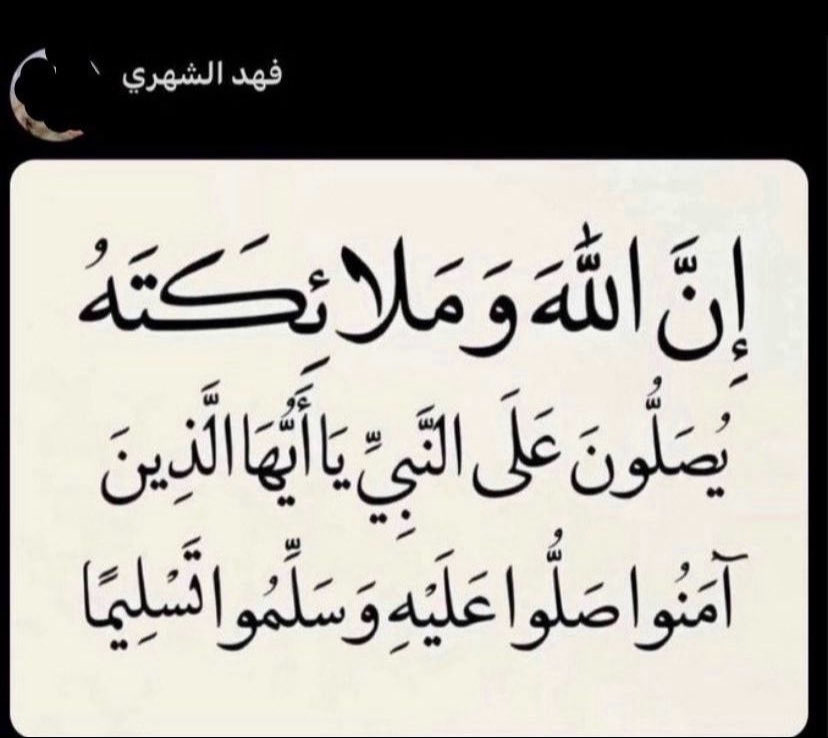 فهد الشهري
إِنَّ اللَّهَ وَمَلَائِكَتَهُ
يُصَلُّونَ عَلَى النَّبِيِّ يَا أَيُّهَا الَّذِينَ
آمَنُوا صَلُّوا عَلَيْهِ وَسَلِّمُوا تَسْلِيمًا